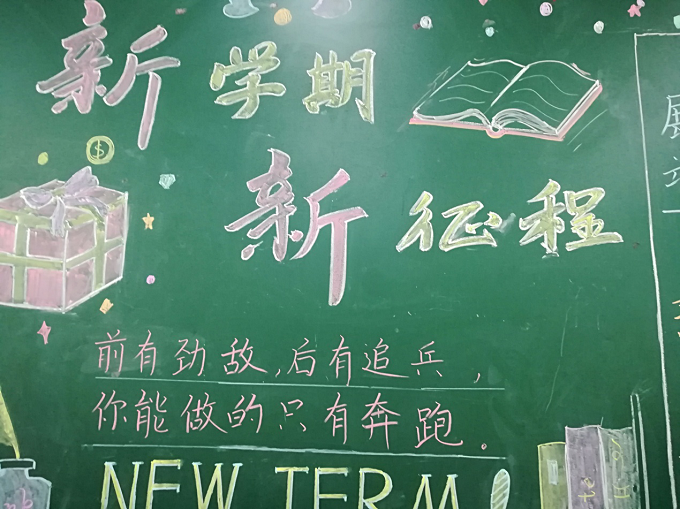 新学期
新征程
前有劲敌,后有追兵,
你能做的只有奔跑.
NEW TERM!